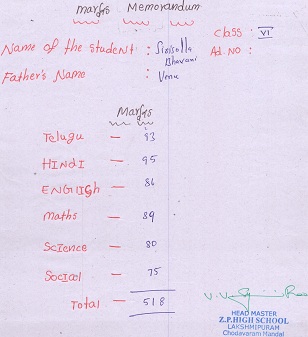 marks Memorandum
class : VI
Name of the student : Sirisolla Bhavani
Ad.No :
Father's Name : Venu
Marks
Telugu — 93
HINdI — 95
ENGLIGh — 86
maths — 89
Science — 80
Social — 75
Total — 518
HEAD MASTER
Z.P.HIGH SCHOOL
LAKSHMIPURAM
Chodavaram Mandal